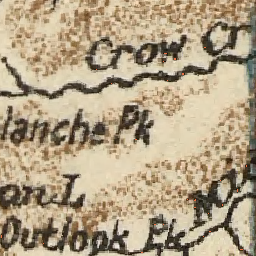 Crow Cr
lanche Pk
an L
Outlook Pk